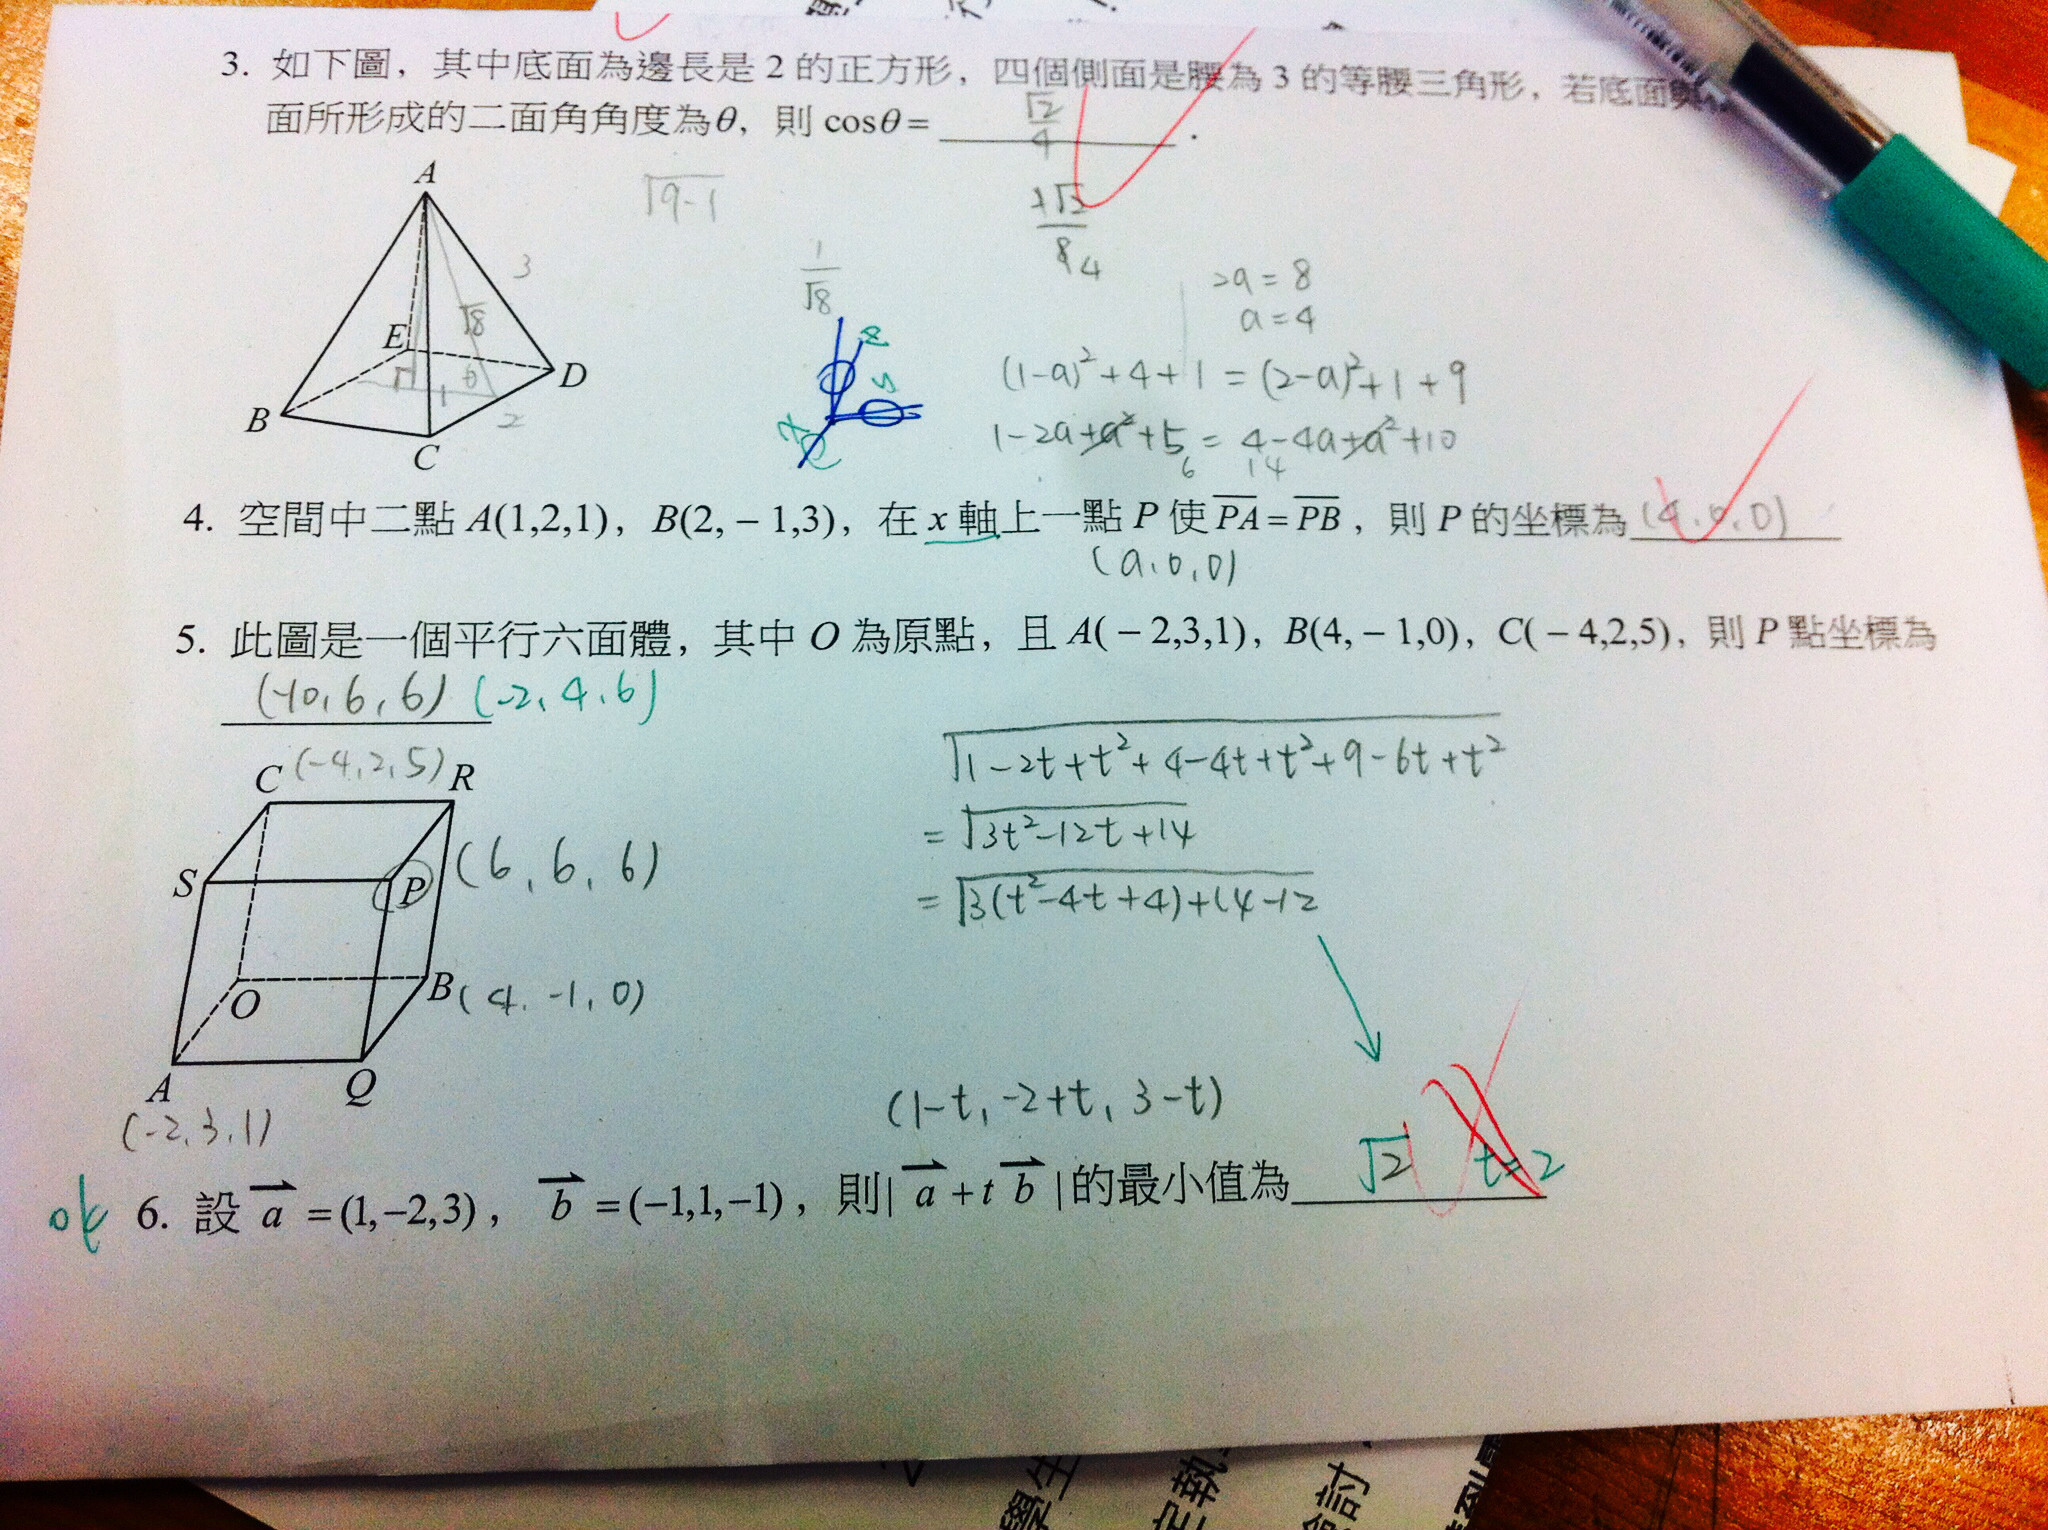 3. 如下圖，其中底面為邊長是 2 的正方形，四個側面是腰為 3 的等腰三角形，若底面與
面所形成的二面角角度為θ，則 cosθ= √2/4 .
√9-1
1/√8
√2/8 4
A
3
√8
E
θ
1
D
B
2
C
z
y
x
2a = 8
a = 4
(1-a)²+4+1 = (2-a)²+1+9
1-2a+a²+5 = 4-4a+a²+10
6 14
4. 空間中二點 A(1,2,1)，B(2, -1,3)，在 x 軸上一點 P 使 PA = PB，則 P 的坐標為 (4,0,0)
(a,0,0)
5. 此圖是一個平行六面體，其中 O 為原點，且 A( -2,3,1)，B(4, -1,0)，C( -4,2,5)，則 P 點坐標為
(-10,6,6) (-2,4,6)
C (-4,2,5) R
S P (6,6,6)
O B (4,-1,0)
A Q
(-2,3,1)
√1-2t+t²+4-4t+t²+9-6t+t²
= √3t²-12t+14
= √3(t²-4t+4)+14-12
(1-t, -2+t, 3-t)
ok 6. 設 a =(1,-2,3)， b =(-1,1,-1)，則| a + t b |的最小值為 √2 t=2
學生
定執
討